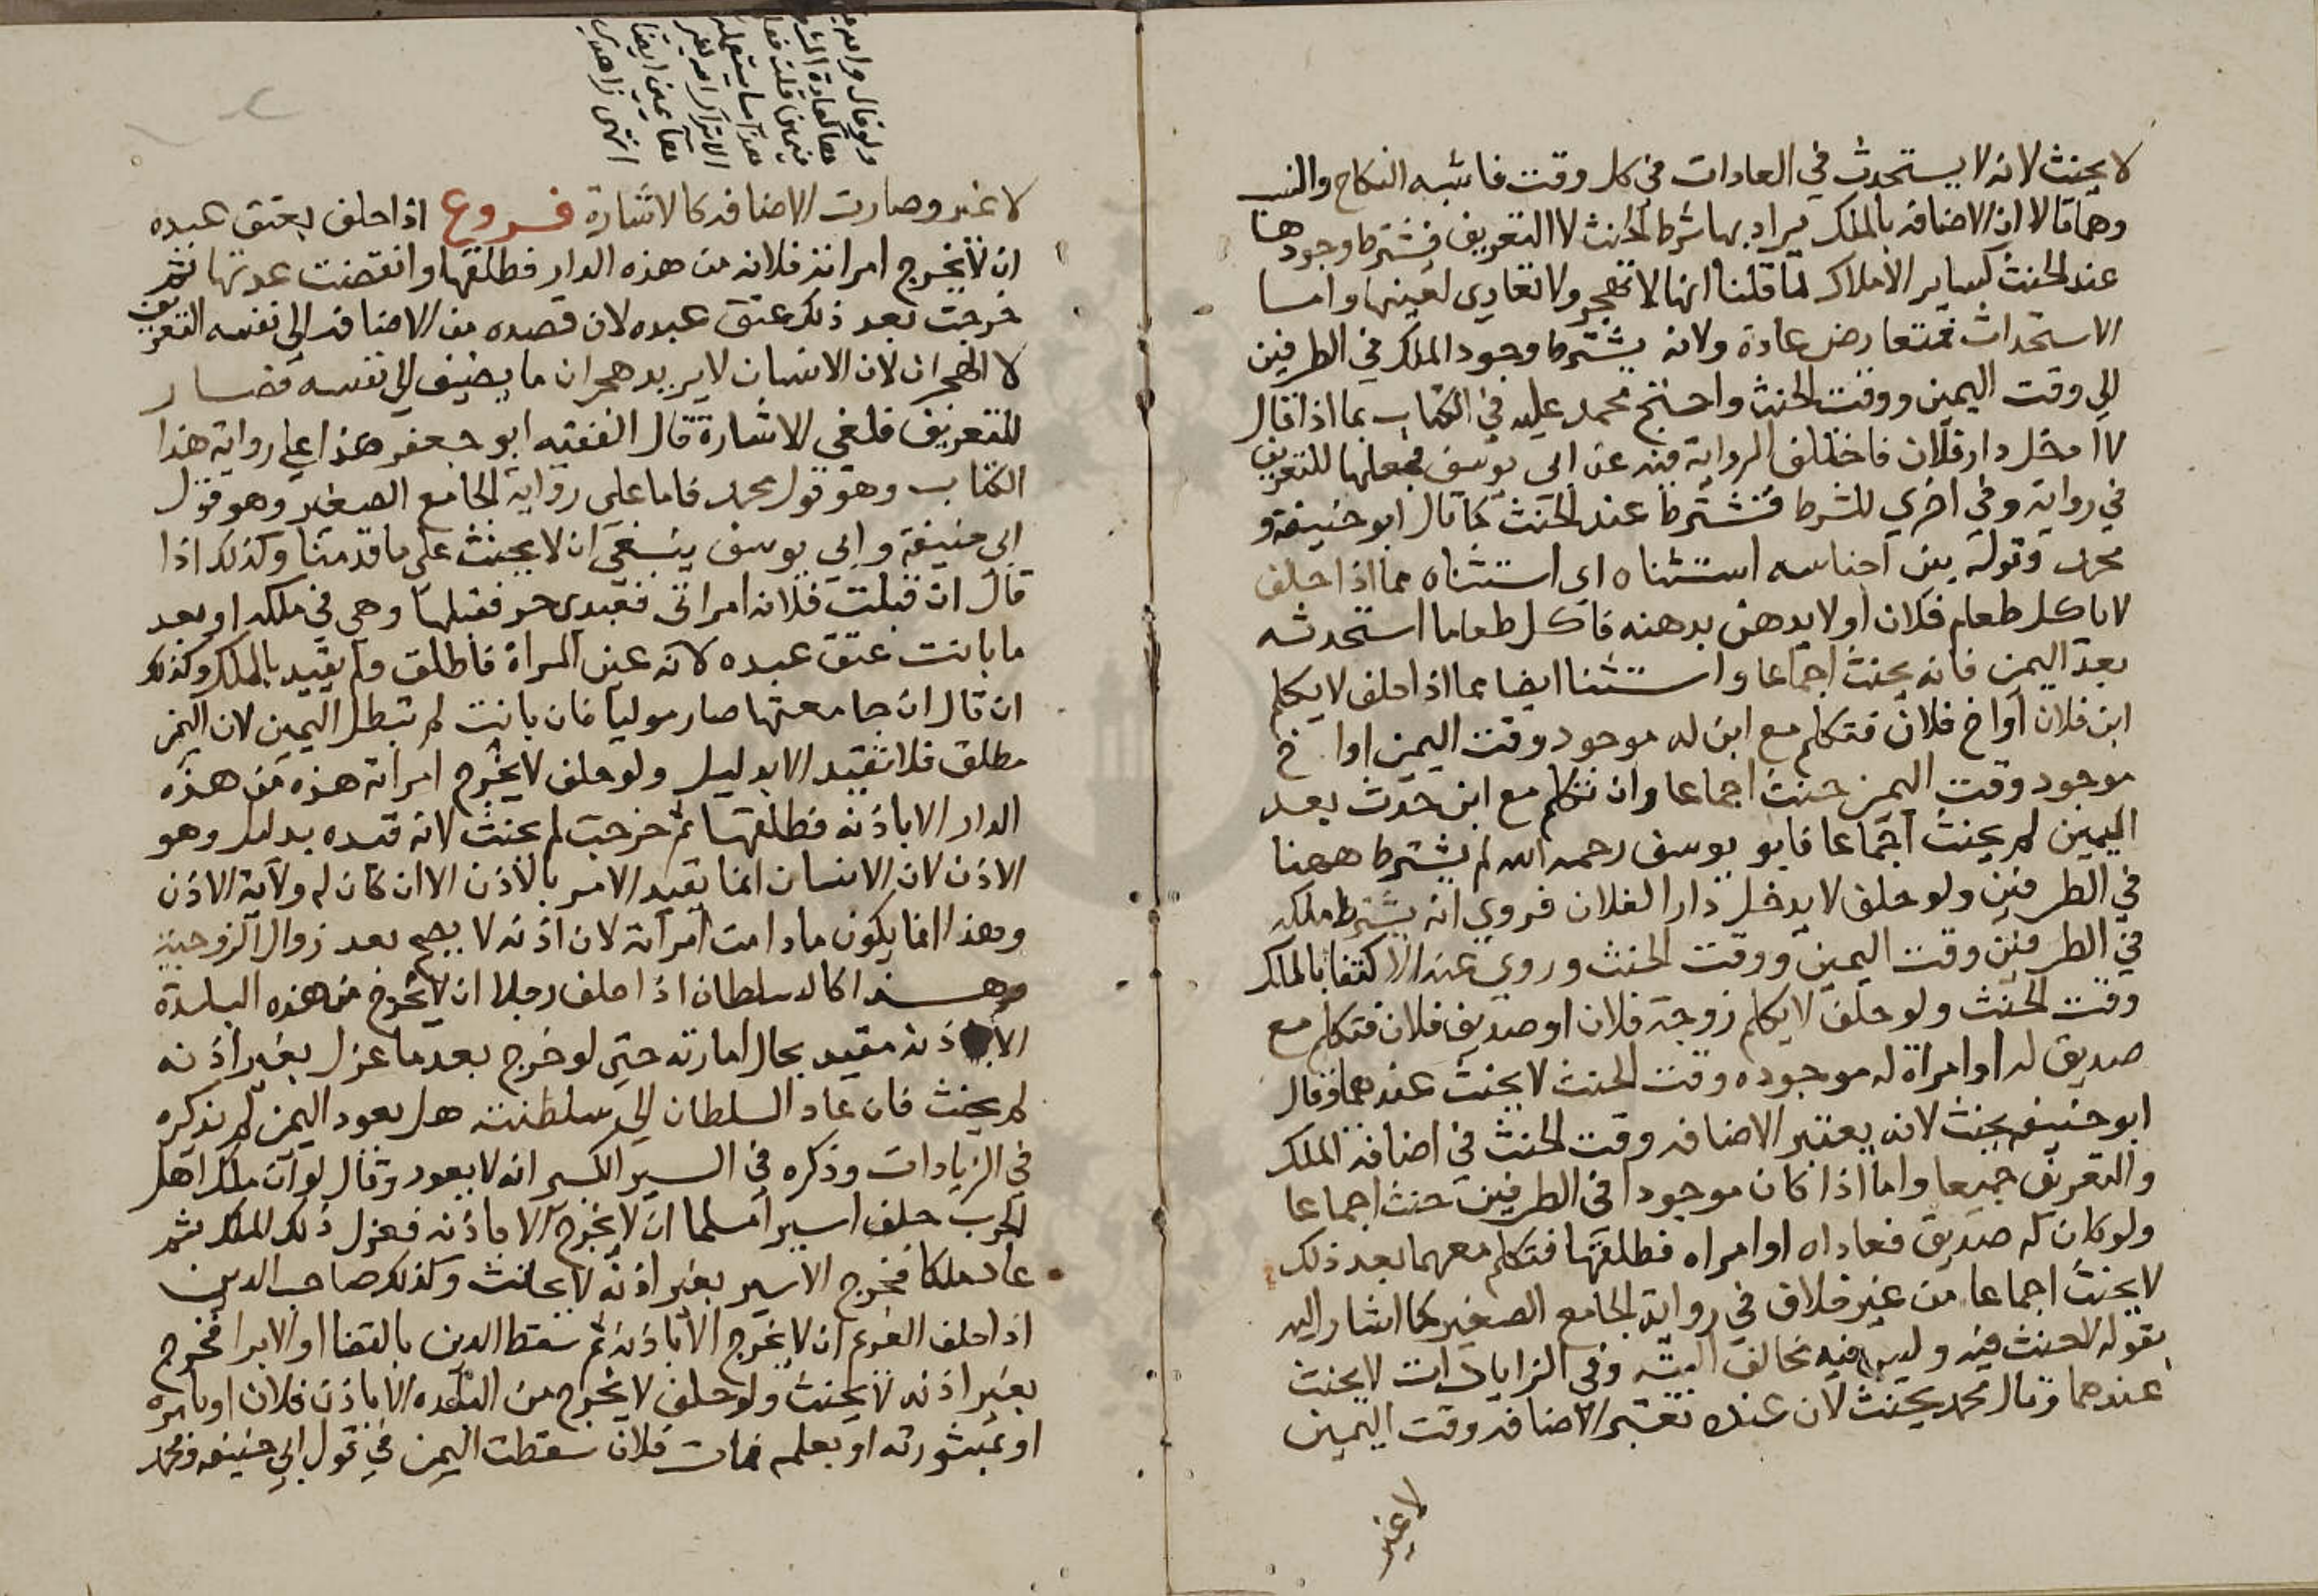 لا يحنث لانه لا يستحدث في العادات في كل وقت فاشبه النكاح والنسب
وهما قالا ان الاضافة بالملك يراد بها شرط الحنث لا التعريف فيشترط وجودها
عند الحنث كساير الاملاك لما قلنا انها لا تهجر ولا تعادى لعينها واما
الاستحداث فمتعارض عادة ولانه يشترط وجود الملك في الطرفين
الي وقت اليمين ووقت الحنث واحتج محمد عليه في الكتاب بما اذا قال
لا ادخل دار فلان فاختلف الرواية فيه عن ابي يوسف فجعلها للتعريف
في رواية وفي اخري للشرط فتشترط عند الحنث كما قال ابو حنيفة و
محمد وقوله بين اجناسه استثناه اي استثناه مما اذا حلف
لا ياكل طعام فلان او لا يدهن بدهنه فاكل طعاما استحدثه
بعد اليمين فانه يحنث اجماعا واستثنا ايضا مما اذا حلف لا يكلم
ابن فلان او اخ فلان فتكلم مع ابن له موجود وقت اليمين او اخ
موجود وقت اليمين حنث اجماعا وان تكلم مع ابن حدث بعد
اليمين لم يحنث اجماعا فابو يوسف رحمه الله لم يشترط ههنا
في الطرفين ولو حلف لا يدخل دارا لفلان فروي انه يشترط ملكه
في الطرفين وقت اليمين ووقت الحنث وروي عنه الاكتفا بالملك
وقت الحنث ولو حلف لا يكلم زوجة فلان او صديق فلان فتكلم مع
صديق له او امراة له موجوده وقت الحنث لا يحنث عندهما وقال
ابو حنيفه يحنث لانه يعتبر الاضافه وقت الحنث في اضافة الملك
والتعريف جميعا واما اذا كان موجودا في الطرفين حنث اجماعا
ولو كان له صديق فعاداه او امراه فطلقها فتكلم معهما بعد ذلك
لا يحنث اجماعا من غير خلاف في رواية الجامع الصغير كما اشار اليه
بقوله لا حنث فيه وليس فيه تخالف البته وفي الزيادات لا يحنث
عندهما وقال محمد يحنث لان عنده تعتبر الاضافه وقت اليمين
لا غير
ولو قال والله
فيمن قلت
هذا ما يستعمله
الاتراك
يمين ايضا
انتهى زاهدي
لا غير وصارت الاضافه كالاشارة فروع اذا حلف بعتق عبده
ان لا يخرج امراته فلانه من هذه الدار فطلقها وانقضت عدتها ثم
خرجت بعد ذلك عتق عبده لان قصده من الاضافه الي نفسه التعريف
لا الهجران لان الانسان لا يريد هجران ما يضيف الي نفسه فصار
للتعريف فلغى الاشارة قال الفقيه ابو جعفر هذا علي رواية هذا
الكتاب وهو قول محمد فاما على رواية الجامع الصغير وهو قول
ابي حنيفة وابي يوسف ينبغي ان لا يحنث على ما قدمنا وكذلك اذا
قال ان قبلت فلانه امراتى فعبدى حر فقبلها وهي في ملكه او بعد
ما بانت عتق عبده لانه عين المراة فاطلق ولم يقيد بالملك وكذلك
ان قال ان جامعتها صار موليا فان بانت لم تبطل اليمين لان اليمن
مطلق فلا تتقيد الا بدليل ولو حلف لا يخرج امراته هذه من هذه
الدار الا باذنه فطلقها ثم خرجت لم يحنث لانه قيده بدليل وهو
الاذن لان الانسان انما يقيد الامر بالاذن الا ان كان له ولاية الاذن
وهذا انما يكون ما دامت امراته لان اذنه لا يصح بعد زوال الزوجية
وهذا كالسلطان اذا حلف رجلا ان لا يخرج من هذه البلدة
الا باذنه مقيد بحال امارته حتي لو خرج بعد ما عزل بغير اذنه
لم يحنث فان عاد السلطان الي سلطنته هل يعود اليمين لم يذكره
في الزيادات وذكره في السير الكبير انه لا يعود وقال لو ان ملك اهل
الحرب حلف اسيرا مسلما ان لا يخرج الا باذنه فعزل ذلك الملك ثم
عاد ملكا فخرج الاسير بغير اذنه لا يحنث وكذلك صاحب الدين
اذا حلف الغريم ان لا يخرج الا باذنه ثم سقط الدين بالقضا او الابرا فخرج
بغير اذنه لا يحنث ولو حلف لا يخرج من البلده الا باذن فلان او بامره
او بمشورته او بعلمه فمات فلان سقطت اليمين في قول ابي حنيفه ومحمد